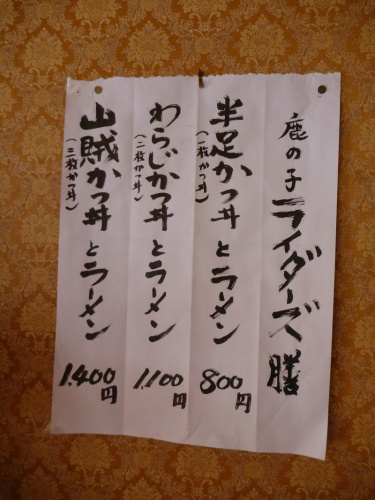 鹿の子ライダーズ膳
半足かつ丼とラーメン
(一枚かつ丼)
800円
わらじかつ丼とラーメン
(二枚かつ丼)
1,100円
山賊かつ丼とラーメン
(三枚かつ丼)
1,400円